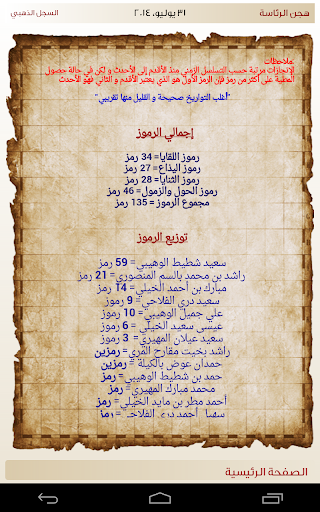 هجن الرئاسة
٣١ يوليو، ٢٠١٤
السجل الذهبي
ملاحظات:
الإنجازات مرتبة حسب التسلسل الزمني منذ الأقدم إلى الأحدث و لكن في حالة حصول
المطية على أكثر من رمز فإن الرمز الأول هو الذي يعتبر الأقدم و الثاني فهو الأحدث
"أغلب التواريخ صحيحة و القليل منها تقريبي"
إجمالي الرموز
رموز اللقايا= 34 رمز
رموز اليذاع= 27 رمز
رموز الثنايا= 28 رمز
رموز الحول والزمول= 46 رمز
مجموع الرموز = 135 رمز
توزيع الرموز
سعيد شطيط الوهيبي= 59 رمز
راشد بن محمد بالسم المنصوري= 21 رمز
مبارك بن أحمد الخيلي= 14 رمز
سعيد دري الفلاحي= 9 رموز
علي جميل الوهيبي= 10 رموز
عيسى سعيد الخيلي= 6 رموز
سعيد عيلان المهيري= 3 رموز
راشد بخيت مقارح المري= رمزين
حمدان عوض بالكيلة= رمزين
حمد بن شطيط الوهيبي= رمز
محمد مبارك المهيري= رمز
أحمد مطر بن مايد الخيلي= رمز
سهيل أحمد دري الفلاحي= رمز
الصفحة الرئيسية